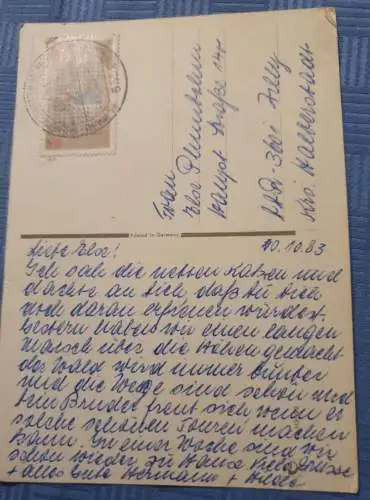 Frau
Else
Hauptstraße
DDR-3601 Zilly
Krs. Halberstadt
Printed in Germany
10.10.83
Liebe Else!
Ich sah die netten Katzen und
dachte an Dich, daß Du Dich
auch daran erfreuen würdest.
Gestern haben wir einen langen
Marsch über die Höhen gemacht
der Wald wird immer bunter
und die Wege sind schön und
Dein Bruder freut sich wenn er
solche schönen Touren machen
kann. In einer Woche sind wir
schon wieder zu Hause. Viele Grüsse
+ alles Gute Hermann +